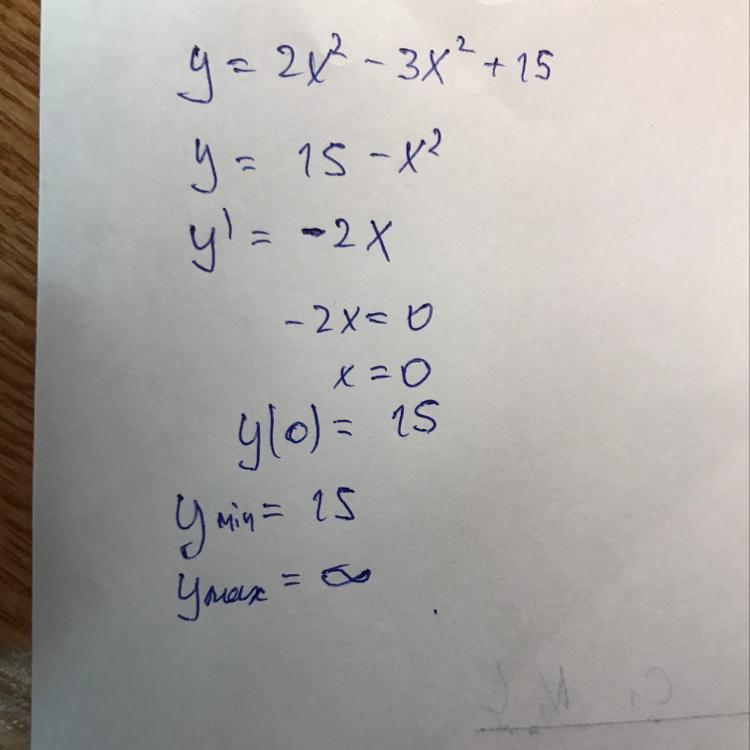 y = 2x² - 3x² + 15
y = 15 - x²
y' = -2x
-2x = 0
x = 0
y(0) = 15
y min = 15
y max = ∞